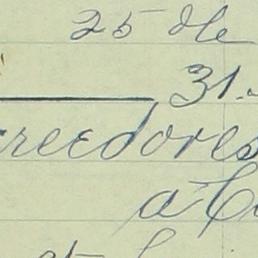 25 de
31.
creedores
a C